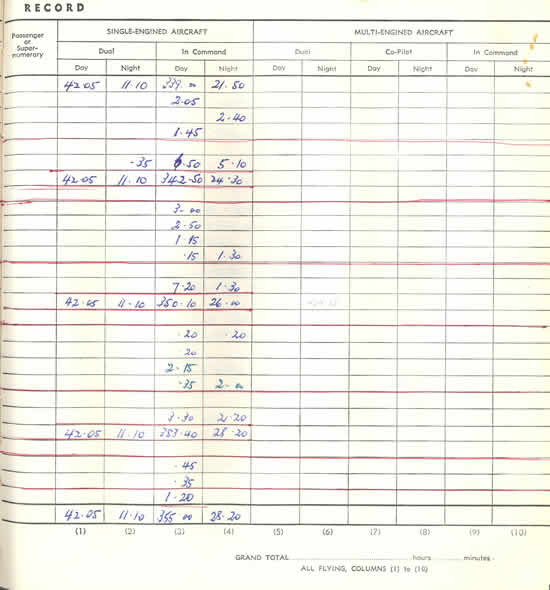 RECORD
Passenger or Super-numerary SINGLE-ENGINED AIRCRAFT MULTI-ENGINED AIRCRAFT
Dual In Command Dual Co-Pilot In Command
Day Night Day Night Day Night Day Night Day Night
42.05 11.10 339.00 21.50
2.05
2.40
1.45
.35 6.50 5.10
42.05 11.10 342.50 24.30
3.00
2.50
1.15
.15 1.30
7.20 1.30
42.05 11.10 350.10 26.00
.20 .20
20
2.15
.35 2.00
3.30 2.20
42.05 11.10 353.40 28.20
.45
.35
1.20
42.05 11.10 355.00 28.20
(1) (2) (3) (4) (5) (6) (7) (8) (9) (10)
GRAND TOTAL hours minutes.
ALL FLYING, COLUMNS (1) to (10)